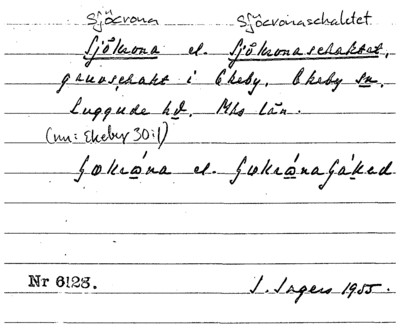 Sjöcrona Sjöcronaschaktet
Sjökrona el. Sjökronaschaktet,
gruvschakt i Ekeby, Ekeby sn,
Luggude hd, Mhs län.
(nu: Ekeby 30:1)
el.
Nr 6128. 1955.